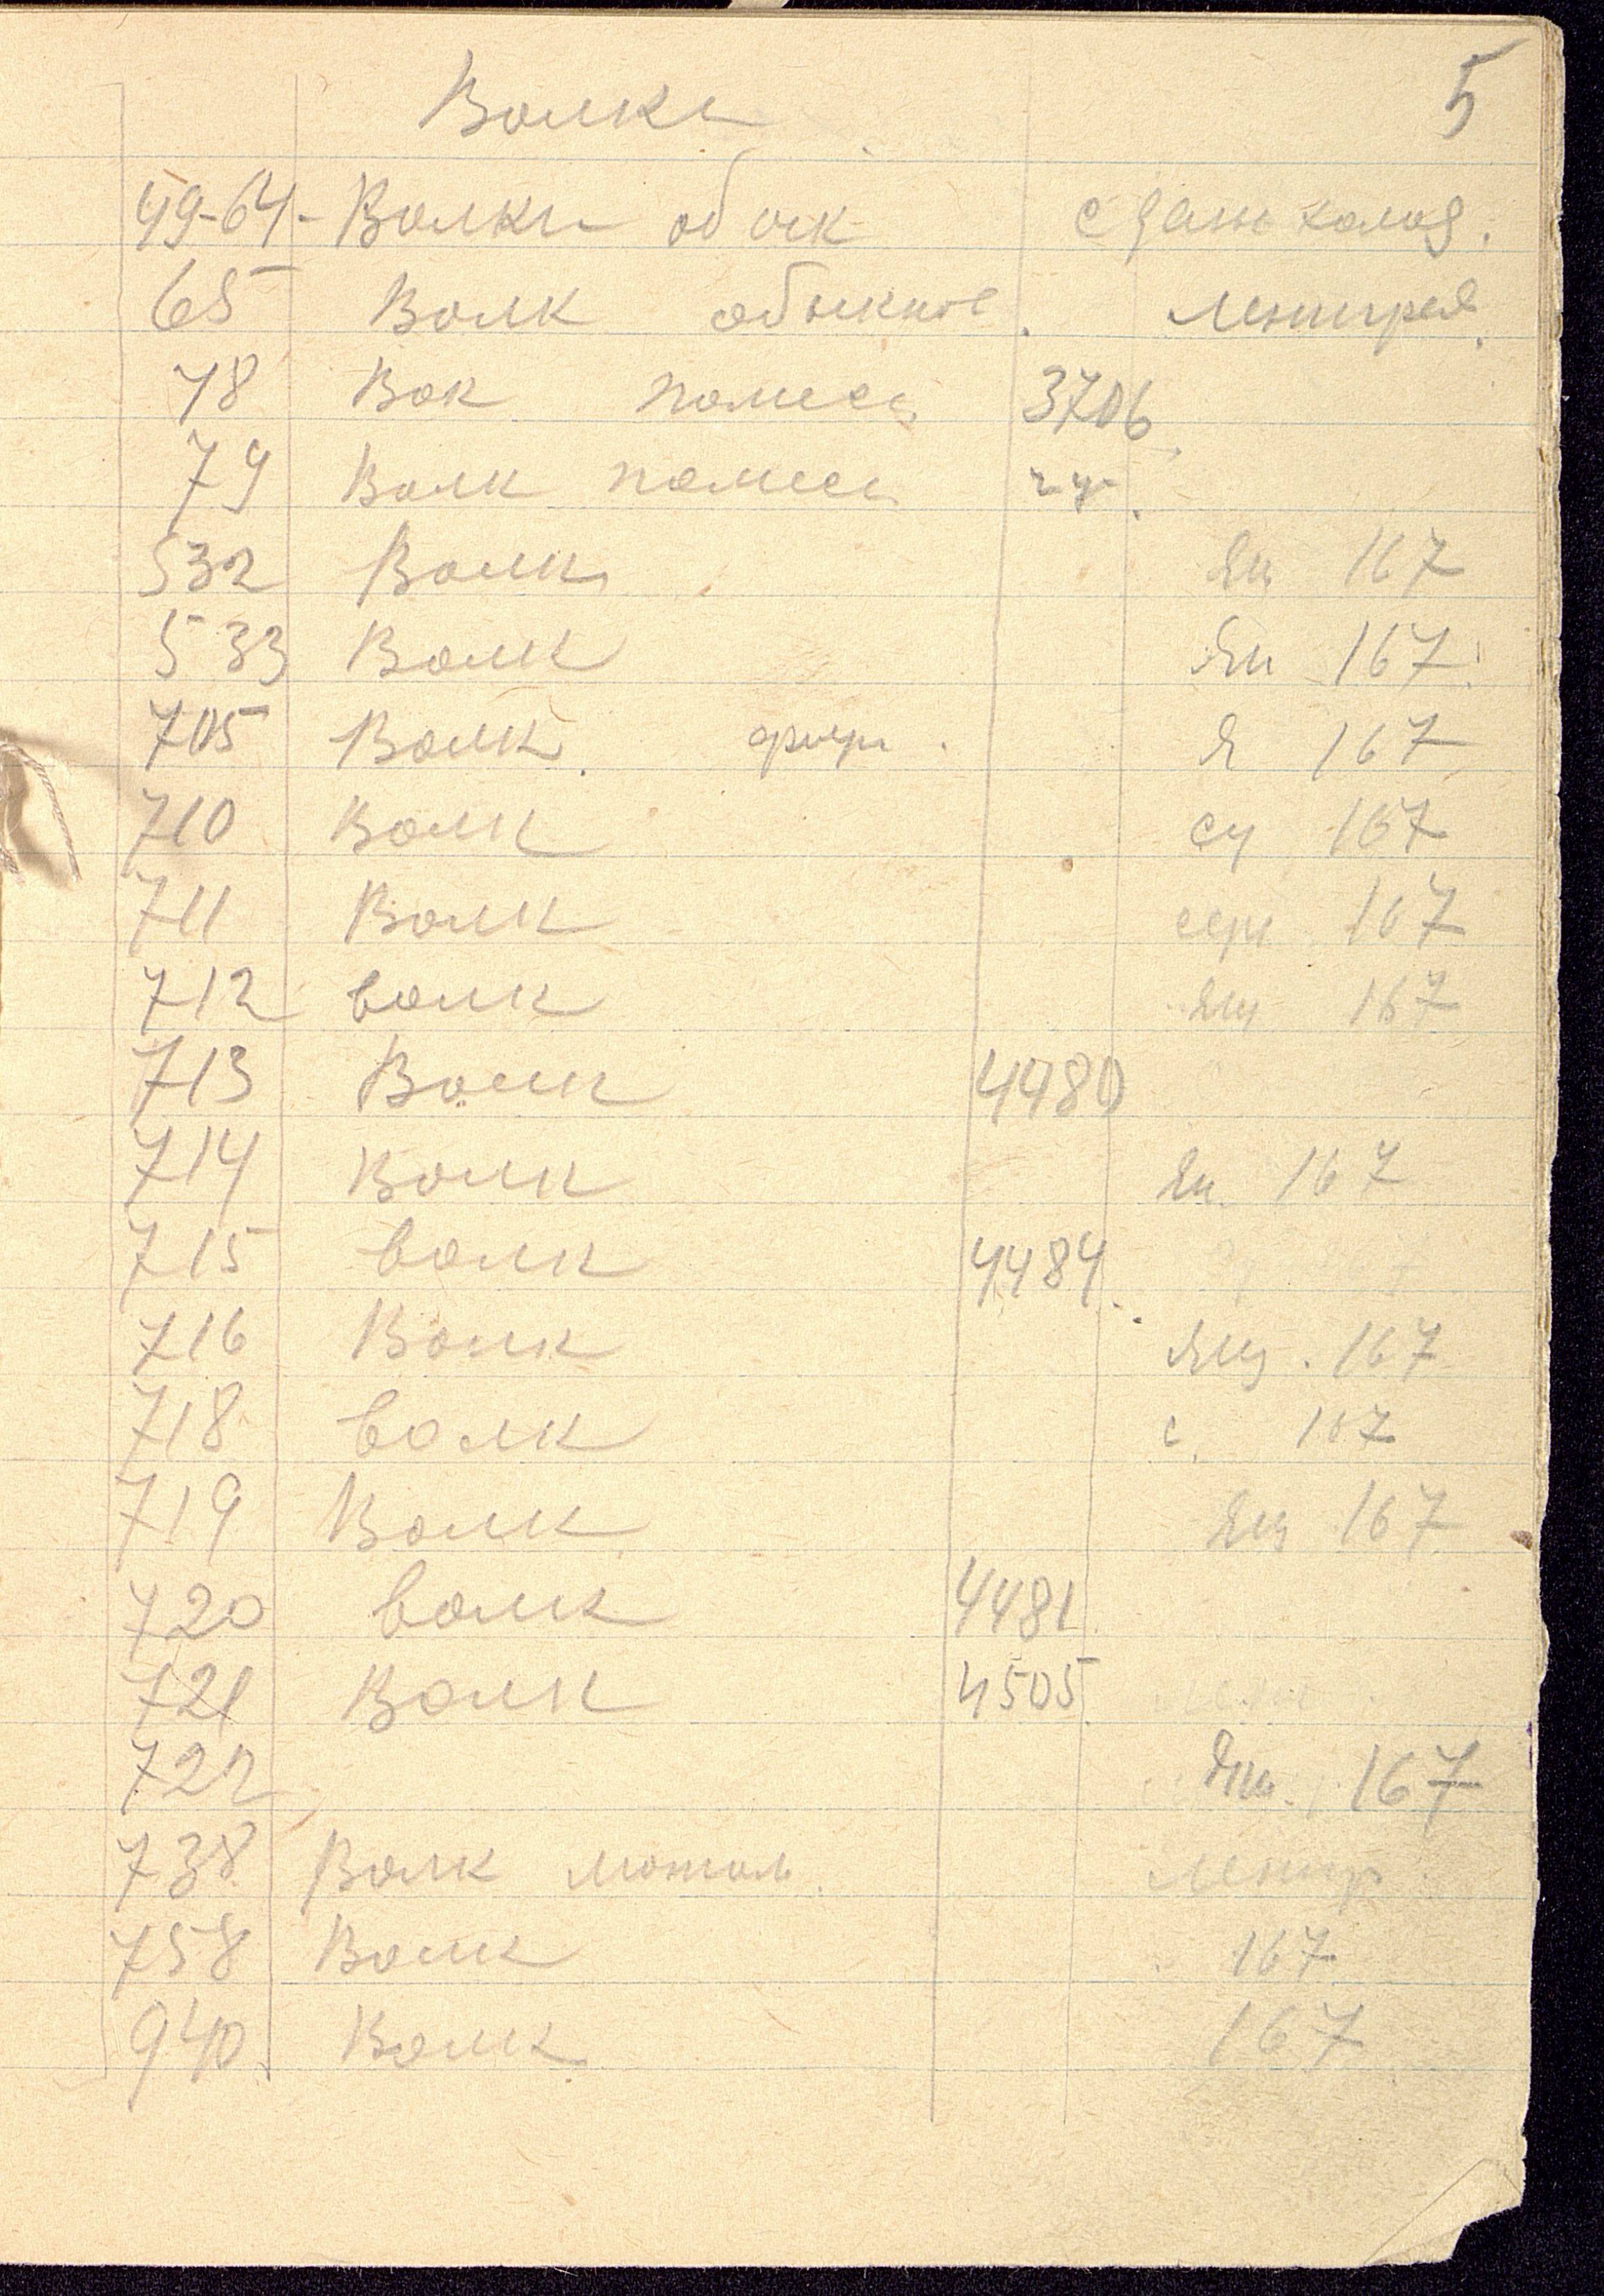 5
Волки
49-64- Волки обык
65 Волк обыкнов. Ленинград.
78 Вок помесь 3706
79 Волк помесь
532 Волк Ящ 167
533 Волк Ящ 167
705 Волк. Я 167
710 Волк 167
711 Волк 167
712 волк Ящ 167
713 Волк 4480
714 Волк Ящ. 167
715 волк 4484.
716 Волк Ящ. 167
718 волк 167
719 Волк Ящ 167
720 волк 4481
721 Волк 4505
722 Ящ. 167
738 Волк Ленигр
758 Волк 167
940 Волк 167